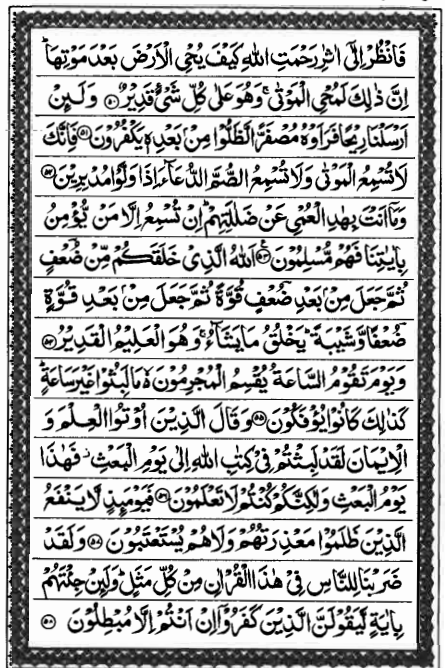 فَانْظُرْ اِلٰۤى اٰثٰرِ رَحْمَتِ اللّٰهِ كَیْفَ یُحْیِ الْاَرْضَ بَعْدَ مَوْتِهَا ؕ
اِنَّ ذٰلِكَ لَمُحْیِ الْمَوْتٰى ۚ وَهُوَ عَلٰى كُلِّ شَیْءٍ قَدِیْرٌ ۵۰ وَلَىِٕنْ
اَرْسَلْنَا رِیْحًا فَرَاَوْهُ مُصْفَرًّا لَّظَلُّوْا مِنْۢ بَعْدِهٖ یَكْفُرُوْنَ ۵۱ فَاِنَّكَ
لَا تُسْمِعُ الْمَوْتٰى وَلَا تُسْمِعُ الصُّمَّ الدُّعَآءَ اِذَا وَلَّوْا مُدْبِرِیْنَ ۵۲
وَمَاۤ اَنْتَ بِهٰدِ الْعُمْیِ عَنْ ضَلٰلَتِهِمْ ؕ اِنْ تُسْمِعُ اِلَّا مَنْ یُّؤْمِنُ
بِاٰیٰتِنَا فَهُمْ مُّسْلِمُوْنَ ۵۳ اَللّٰهُ الَّذِیْ خَلَقَكُمْ مِّنْ ضُعْفٍ
ثُمَّ جَعَلَ مِنْۢ بَعْدِ ضُعْفٍ قُوَّةً ثُمَّ جَعَلَ مِنْۢ بَعْدِ قُوَّةٍ
ضُعْفًا وَّشَیْبَةً ؕ یَخْلُقُ مَا یَشَآءُ ۚ وَهُوَ الْعَلِیْمُ الْقَدِیْرُ ۵۴
وَیَوْمَ تَقُوْمُ السَّاعَةُ یُقْسِمُ الْمُجْرِمُوْنَ ۙ مَا لَبِثُوْا غَیْرَ سَاعَةٍ ؕ
كَذٰلِكَ كَانُوْا یُؤْفَكُوْنَ ۵۵ وَقَالَ الَّذِیْنَ اُوْتُوا الْعِلْمَ وَ
الْاِیْمَانَ لَقَدْ لَبِثْتُمْ فِیْ كِتٰبِ اللّٰهِ اِلٰى یَوْمِ الْبَعْثِ ؗ فَهٰذَا
یَوْمُ الْبَعْثِ وَلٰكِنَّكُمْ كُنْتُمْ لَا تَعْلَمُوْنَ ۵۶ فَیَوْمَىِٕذٍ لَّا یَنْفَعُ
الَّذِیْنَ ظَلَمُوْا مَعْذِرَتُهُمْ وَلَا هُمْ یُسْتَعْتَبُوْنَ ۵۷ وَلَقَدْ
ضَرَبْنَا لِلنَّاسِ فِیْ هٰذَا الْقُرْاٰنِ مِنْ كُلِّ مَثَلٍ ؕ وَلَىِٕنْ جِئْتَهُمْ
بِاٰیَةٍ لَّیَقُوْلَنَّ الَّذِیْنَ كَفَرُوْۤا اِنْ اَنْتُمْ اِلَّا مُبْطِلُوْنَ ۵۸